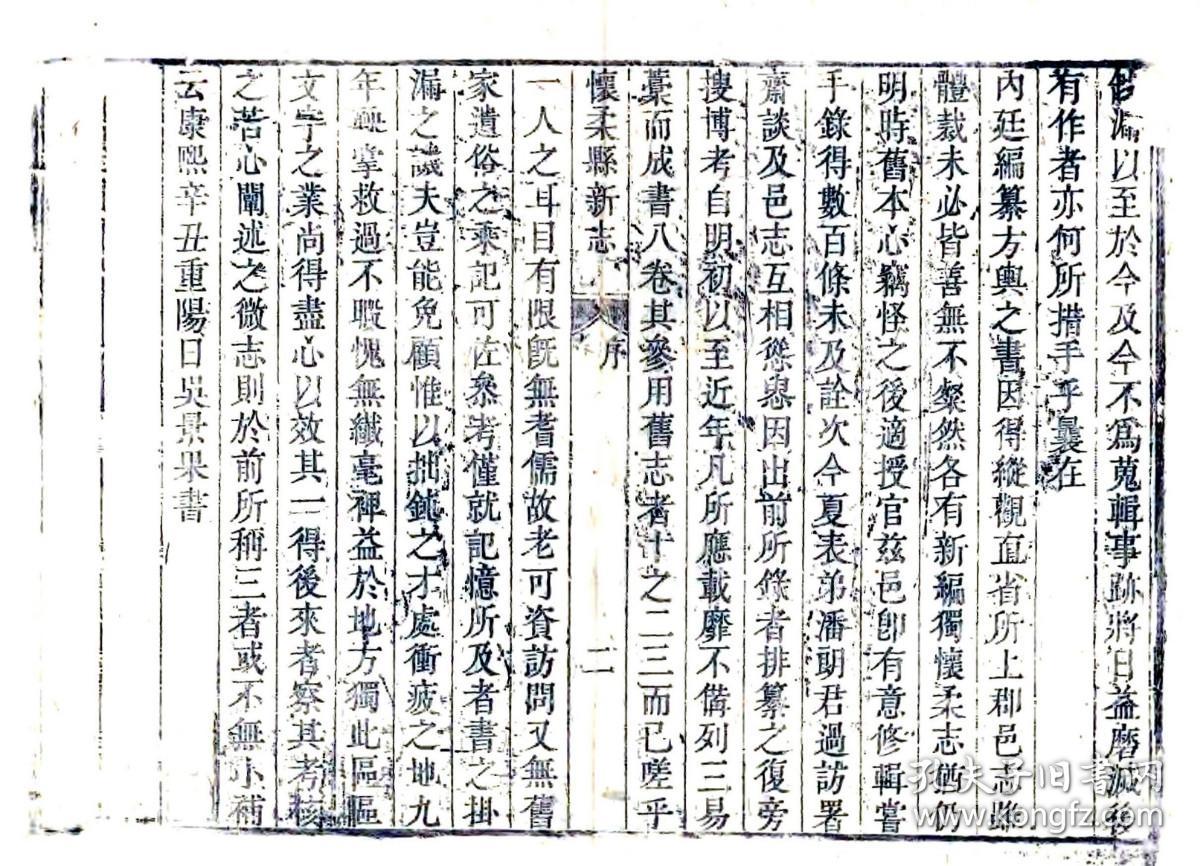 以至於今及今不爲蒐輯事跡將日益磨滅後
有作者亦何所措手乎曩在
內廷編纂方輿之書因得縱觀直省所上郡邑志
體裁未必皆善無不燦然各有新編獨懷柔志猶仍
明時舊本心竊怪之後適授官兹邑卽有意修輯嘗
手錄得數百條未及詮次今夏表弟潘朗君過訪署
齋談及邑志互相慫恿因出前所錄者排纂之復旁
搜博考自明初以至近年凡所應載靡不備列三易
藁而成書八卷其參用舊志者十之二三而已嗟乎
懷柔縣新志 序 二
一人之耳目有限旣無耆儒故老可資訪問又無舊
家遺俗之乘記可佐叅考僅就記憶所及者書之掛
漏之譏夫豈能免顧惟以拙鈍之才處衝疲之地九
年鞅掌救過不暇愧無纖毫裨益於地方獨此區區
文字之業尚得盡心以效其一得後來者察其考核
之苦心闡述之微志則於前所稱三者或不無小補
云康熙辛丑重陽日吳景果書
孔夫子旧书网
www.kongfz.com